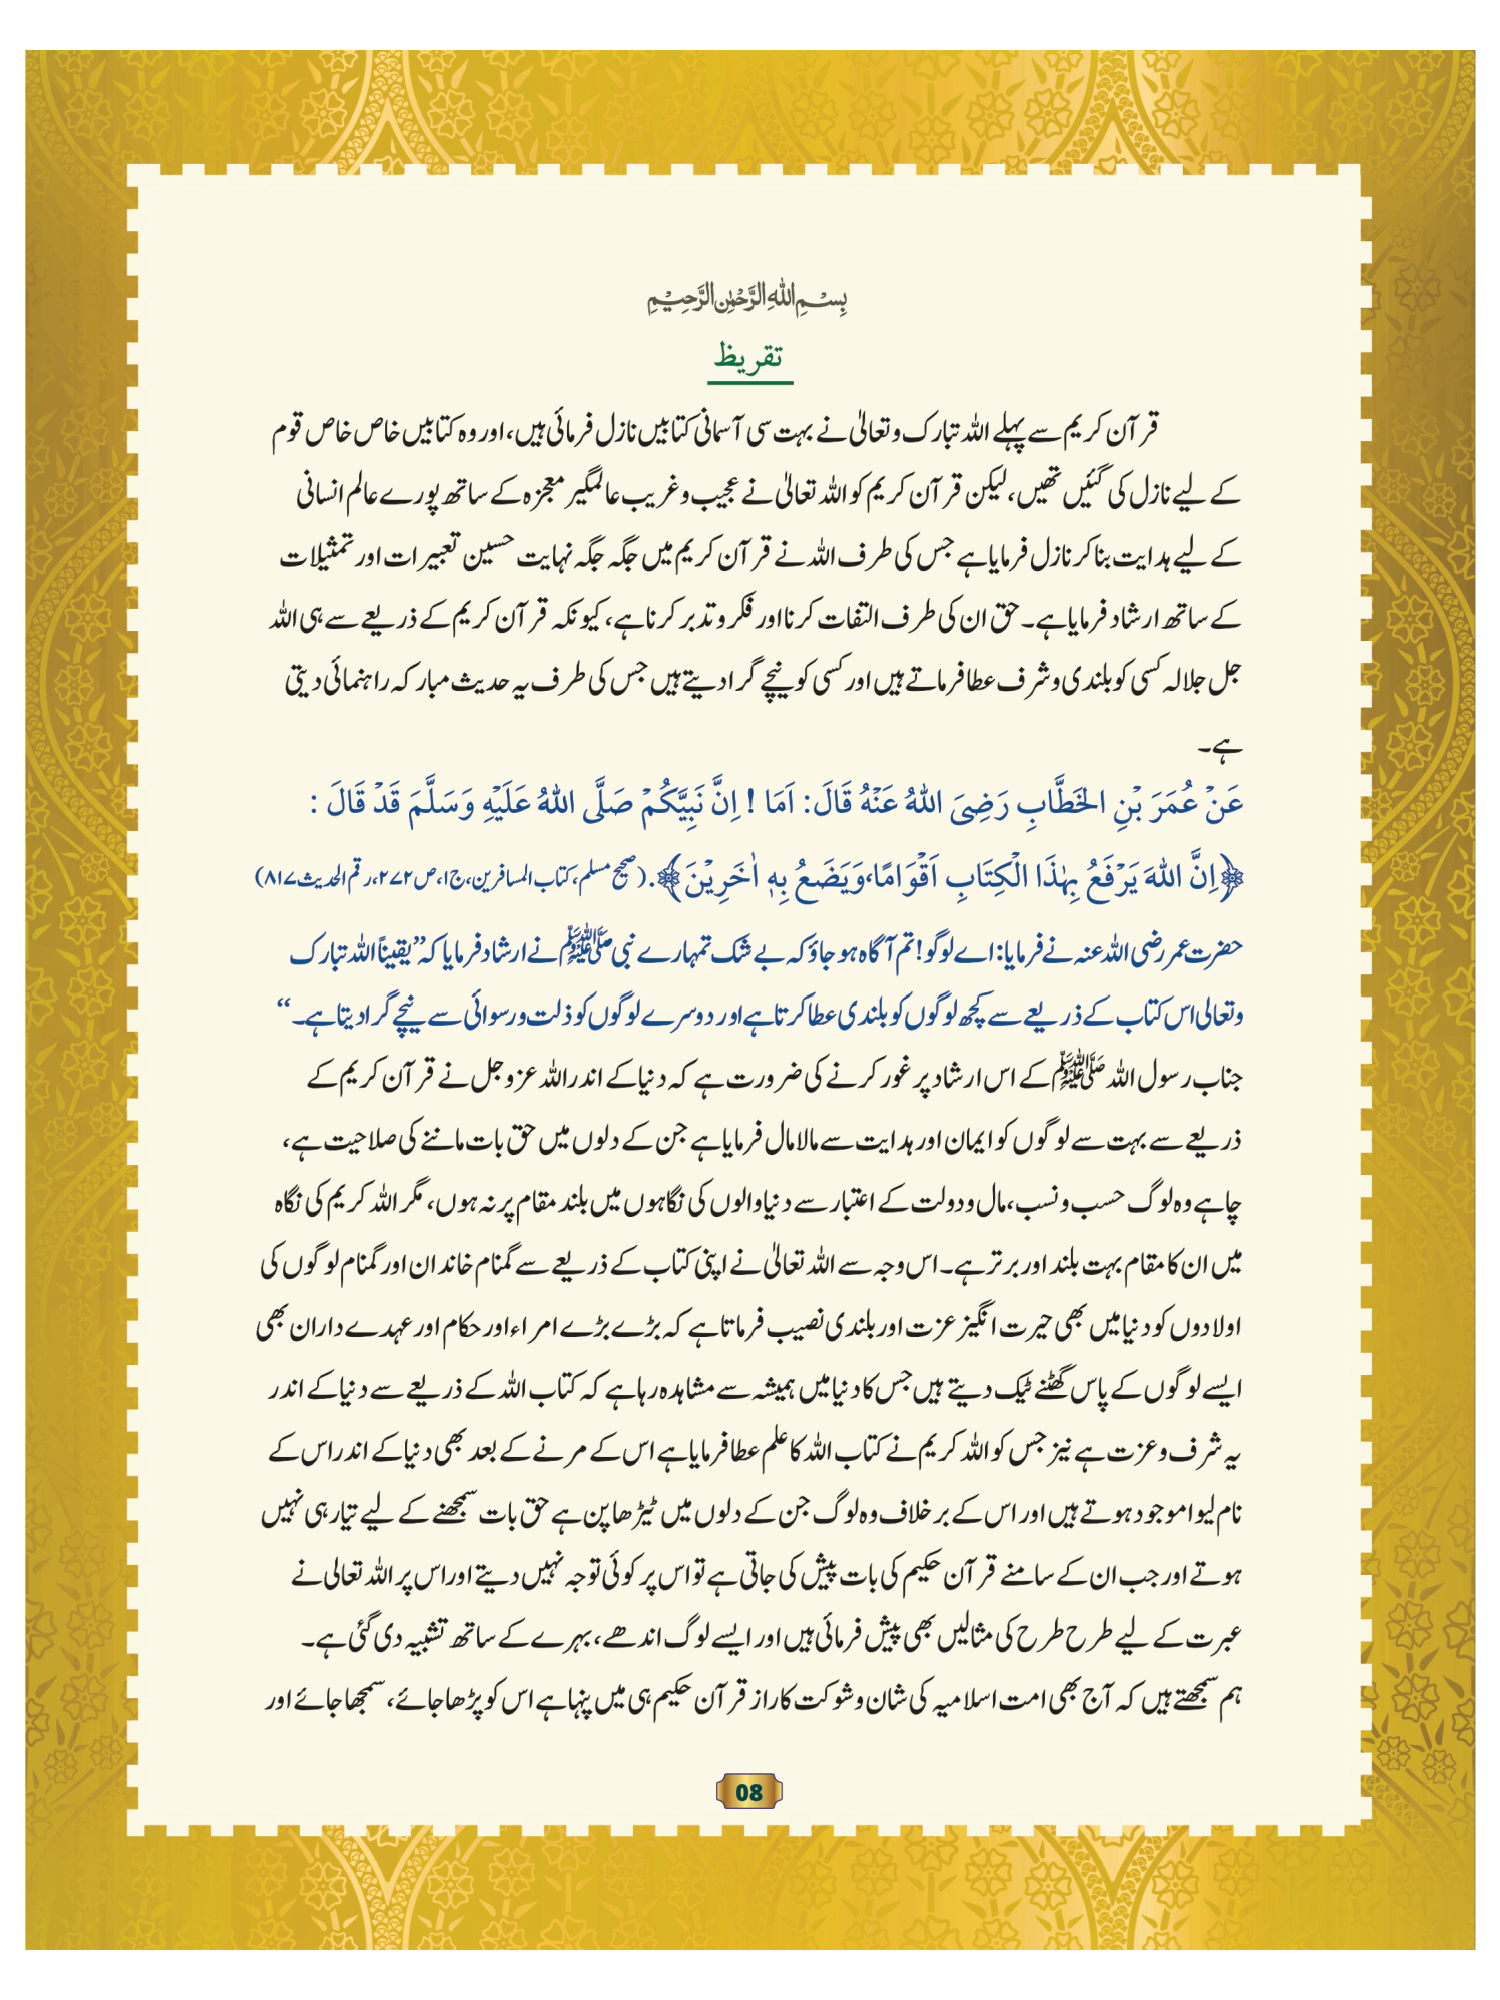 بِسْمِ اللهِ الرَّحْمٰنِ الرَّحِيْمِ
تقریظ
قرآن کریم سے پہلے اللہ تبارک وتعالیٰ نے بہت سی آسمانی کتابیں نازل فرمائی ہیں،اور وہ کتابیں خاص خاص قوم
کے لیے نازل کی گئیں تھیں،لیکن قرآن کریم کو اللہ تعالیٰ نے عجیب وغریب عالمگیر معجزہ کے ساتھ پورے عالم انسانی
کے لیے ہدایت بنا کر نازل فرمایا ہے جس کی طرف اللہ نے قرآن کریم میں جگہ جگہ نہایت حسین تعبیرات اور تمثیلات
کے ساتھ ارشاد فرمایا ہے۔ حق ان کی طرف التفات کرنا اور فکر و تدبر کرنا ہے، کیونکہ قرآن کریم کے ذریعے سے ہی اللہ
جل جلالہ کسی کو بلندی وشرف عطا فرماتے ہیں اور کسی کو نیچے گرا دیتے ہیں جس کی طرف یہ حدیث مبارکہ راہنمائی دیتی
ہے۔
عَنْ عُمَرَ بْنِ الخَطَّابِ رَضِیَ اللهُ عَنْهُ قَالَ: اَمَا ! اِنَّ نَبِیَّکُمْ صَلَّی اللهُ عَلَیْهِ وَسَلَّمَ قَدْ قَالَ :
﴿اِنَّ اللهَ یَرْفَعُ بِهٰذَا الْکِتَابِ اَقْوَامًا،وَیَضَعُ بِهٖ اٰخَرِیْنَ﴾.(صحیح مسلم،کتاب المسافرین،ج۱،ص۲۷۲،رقم الحدیث۸۱۷)
حضرت عمر رضی اللہ عنہ نے فرمایا:اے لوگو!تم آگاہ ہو جاؤ کہ بے شک تمہارے نبی ﷺ نے ارشاد فرمایا کہ”یقیناً اللہ تبارک
وتعالی اس کتاب کے ذریعے سے کچھ لوگوں کو بلندی عطا کرتا ہے اور دوسرے لوگوں کو ذلت ورسوائی سے نیچے گرا دیتا ہے۔“
جناب رسول اللہ ﷺ کے اس ارشاد پر غور کرنے کی ضرورت ہے کہ دنیا کے اندر اللہ عزوجل نے قرآن کریم کے
ذریعے سے بہت سے لوگوں کو ایمان اور ہدایت سے مالا مال فرمایا ہے جن کے دلوں میں حق بات ماننے کی صلاحیت ہے،
چاہے وہ لوگ حسب ونسب،مال ودولت کے اعتبار سے دنیا والوں کی نگاہوں میں بلند مقام پر نہ ہوں، مگر اللہ کریم کی نگاہ
میں ان کا مقام بہت بلند اور برتر ہے۔اس وجہ سے اللہ تعالیٰ نے اپنی کتاب کے ذریعے سے گمنام خاندان اور گمنام لوگوں کی
اولادوں کو دنیا میں بھی حیرت انگیز عزت اور بلندی نصیب فرماتا ہے کہ بڑے بڑے امراء اور حکام اور عہدے داران بھی
ایسے لوگوں کے پاس گھٹنے ٹیک دیتے ہیں جس کا دنیا میں ہمیشہ سے مشاہدہ رہا ہے کہ کتاب اللہ کے ذریعے سے دنیا کے اندر
یہ شرف وعزت ہے نیز جس کو اللہ کریم نے کتاب اللہ کا علم عطا فرمایا ہے اس کے مرنے کے بعد بھی دنیا کے اندر اس کے
نام لیوا موجود ہوتے ہیں اور اس کے برخلاف وہ لوگ جن کے دلوں میں ٹیڑھا پن ہے حق بات سمجھنے کے لیے تیار ہی نہیں
ہوتے اور جب ان کے سامنے قرآن حکیم کی بات پیش کی جاتی ہے تو اس پر کوئی توجہ نہیں دیتے اور اس پر اللہ تعالی نے
عبرت کے لیے طرح طرح کی مثالیں بھی پیش فرمائی ہیں اور ایسے لوگ اندھے، بہرے کے ساتھ تشبیہ دی گئی ہے۔
ہم سمجھتے ہیں کہ آج بھی امت اسلامیہ کی شان وشوکت کا راز قرآن حکیم ہی میں پنہا ہے اس کو پڑھا جائے، سمجھا جائے اور
08